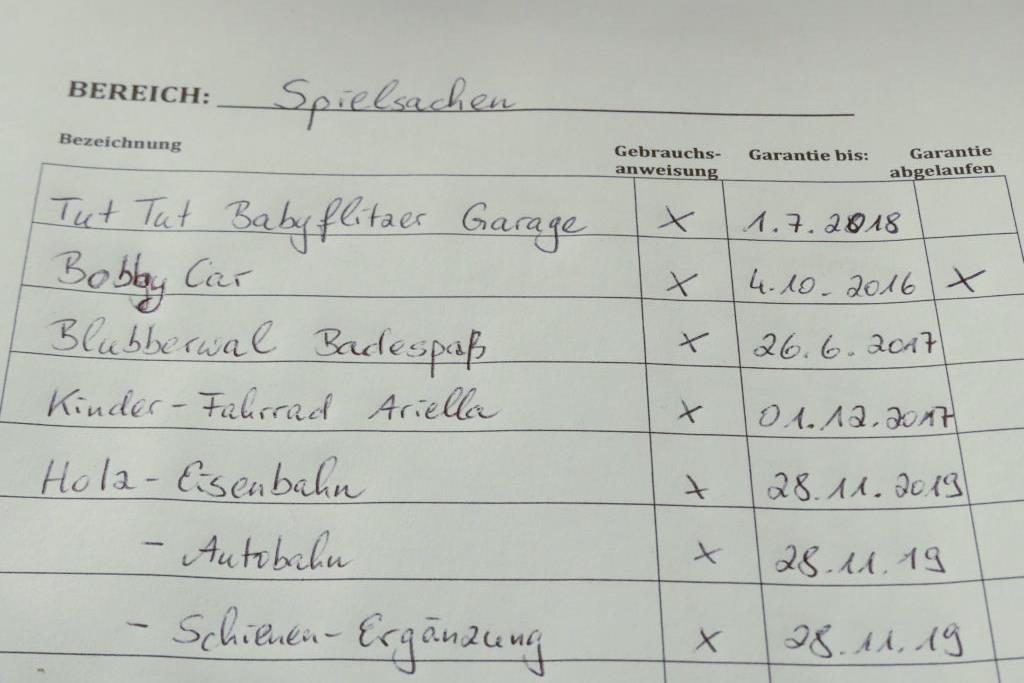 BEREICH: Spielsachen
Bezeichnung Gebrauchs- Garantie bis: Garantie
anweisung abgelaufen
Tut Tut Babyflitzer Garage X 1.7.2018
Bobby Car X 4.10.2016 X
Blubberwal Badespaß X 26.6.2017
Kinder-Fahrrad Ariella X 01.12.2017
Holz-Eisenbahn X 28.11.2019
- Autobahn X 28.11.19
- Schienen-Ergänzung X 28.11.19